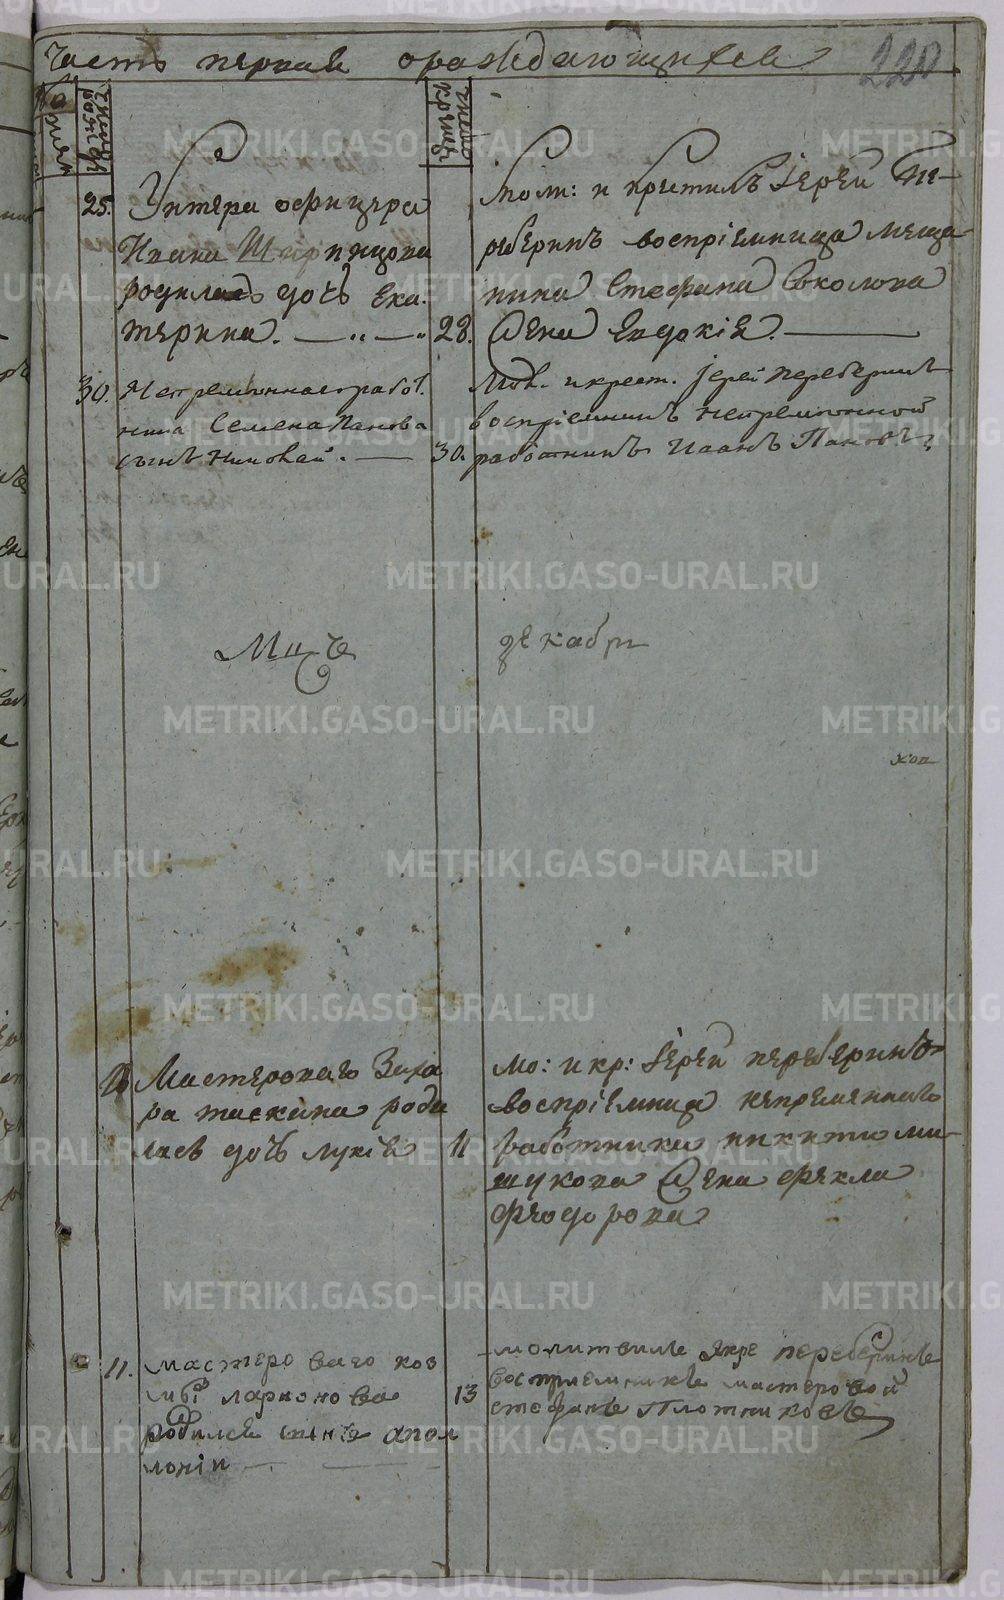 Часть первая о раждающихся
220
25. Унтера офицера
Ивана
родилась дочь Ека-
терина. 28.
Мол: и крестилъ Іерей Пе-
реберинъ воспріемница меща-
нина Стефана Соколова
жена Евдокія.
30. Непременнаго работ.
ника Семена Панова
сынъ Николай. 30.
Мол. и крест. іерей Переберинъ
воспріемникъ непременной
работникъ Иванъ Пановъ
Мцъ декабрь
Мастероваго Заха
ра родi
лась дочь Лукія 11
Мо: и кр: Іерей Переберинъ
воспріемница непременнаго
работника Никиты Ми-
шукова жена Фекла
Феодорова
11. мастероваго коз
мы ларионова
родился сынъ апол
лоній 13
молитвилъ Переберинъ
воспріемникъ мастеровой
стефанъ Плотниковъ
METRIKI.GASO-URAL.RU